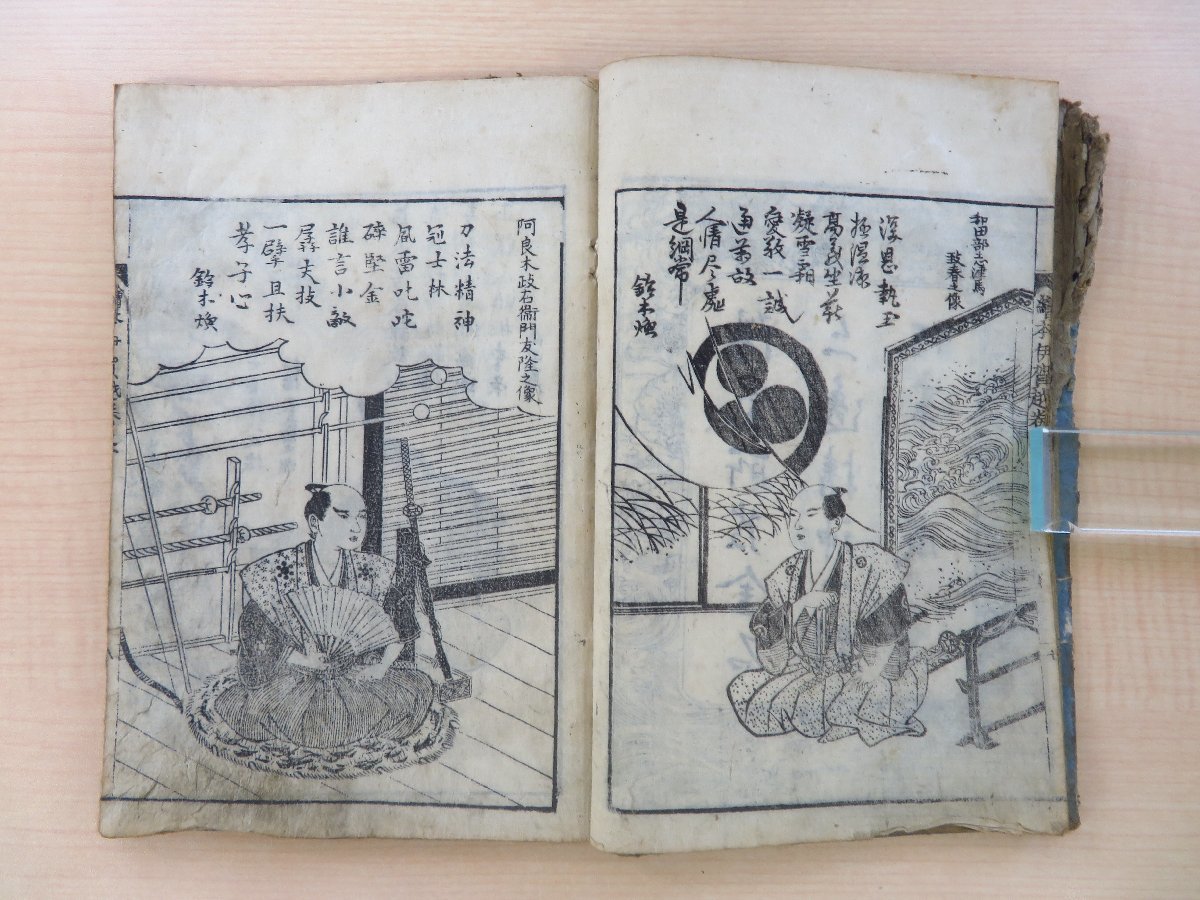 繪本伊賀越孝
和田部志津馬
玻春之像
深恩執玉
極温凉
高義生萩
凝雪霜
愛敬一誠
通万故
人情尽處
是綱常
鈴木煥
阿良木政右衞門友隆之像
刀法精神
冠士林
風雷叱咤
碎堅金
誰言小敵
孱夫技
一擘且扶
孝子心
鈴木煥